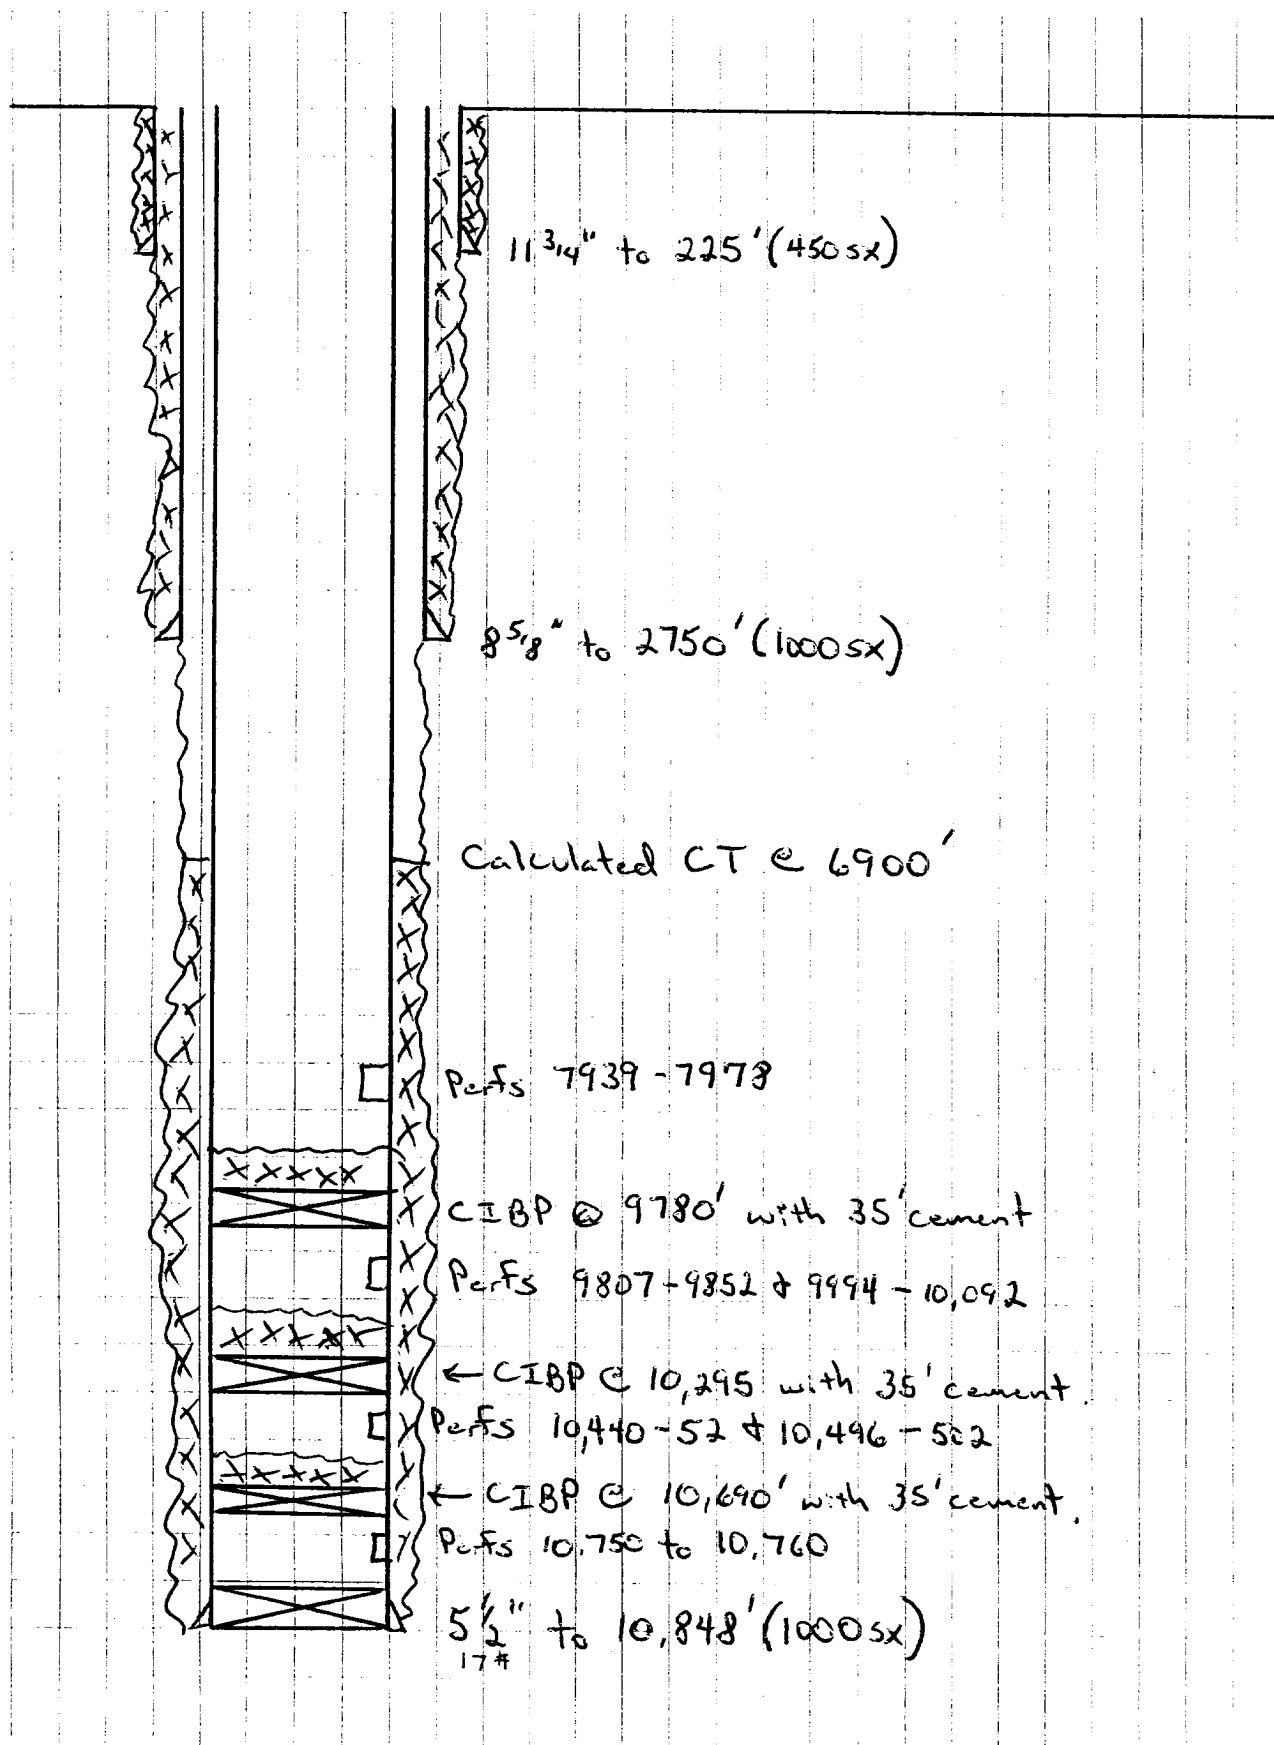 11 3/4" to 225' (450 sx)
8 5/8" to 2750' (1000 sx)
Calculated CT @ 6900'
Perfs 7939 - 7978
CIBP @ 9780' with 35' cement
Perfs 9807-9852 & 9994 - 10,092
← CIBP @ 10,295 with 35' cement.
Perfs 10,440-52 & 10,496 - 502
← CIBP @ 10,690' with 35' cement.
Perfs 10,750 to 10,760
5 1/2" to 10,848' (1000 sx)
17#